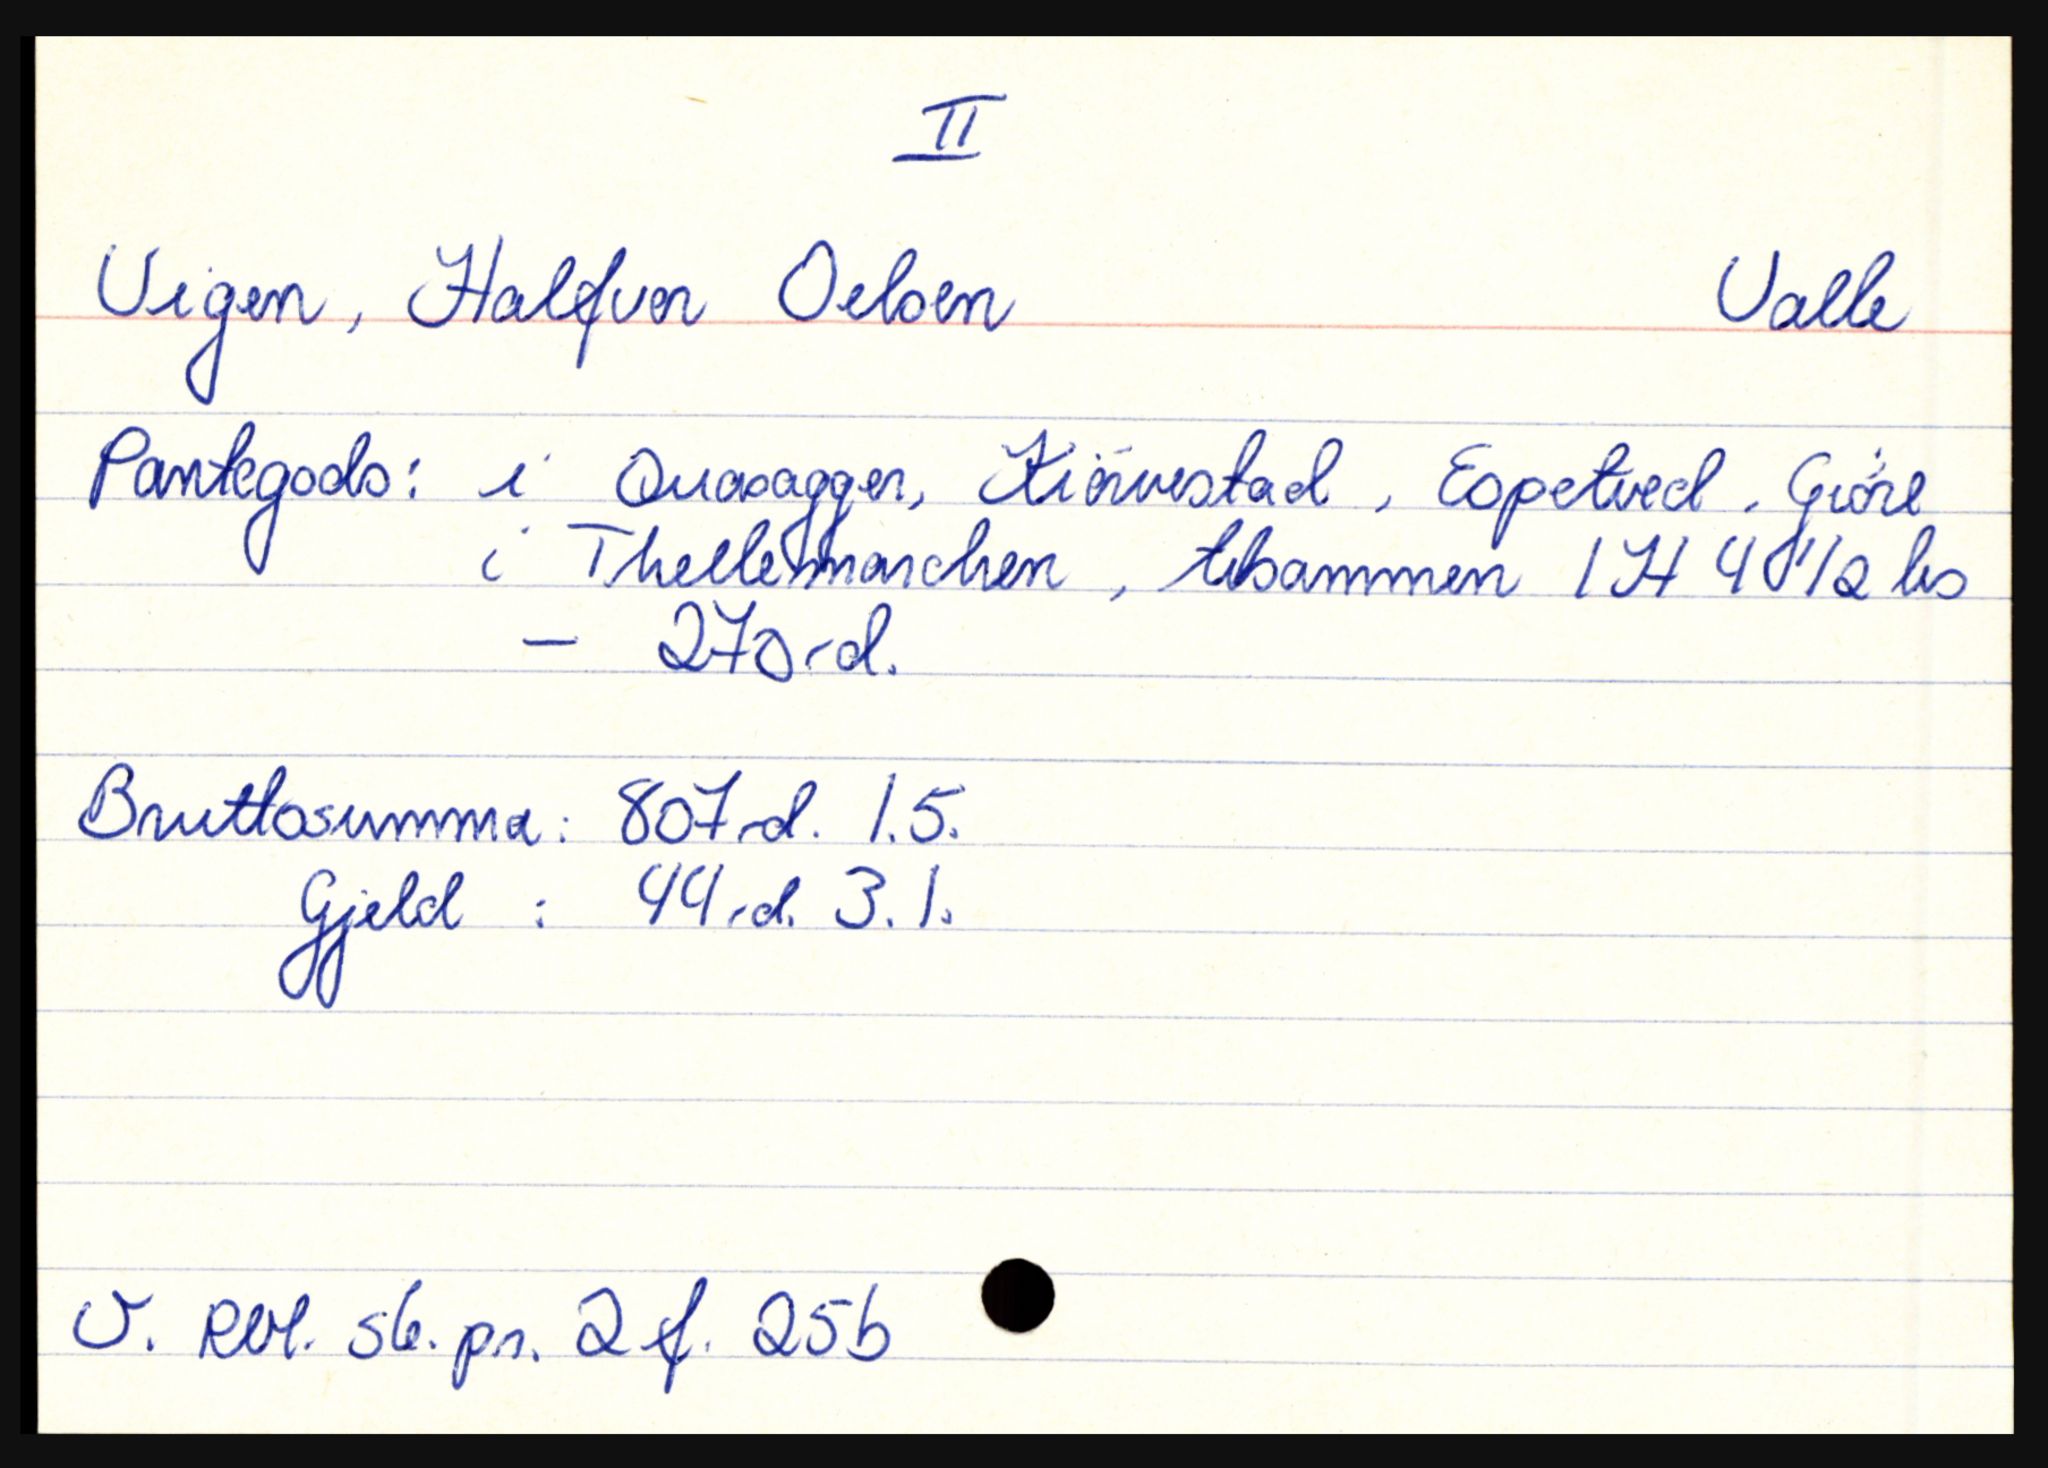 II
Vigen, Halfvor Oelsen Valle
Pantegods: i Quasagger, Kiörvestad, Espetved, Giöre
i Thellemarchen, tilsammen 1 H 4 1/2 lis
— 270 rd.
Bruttosumma: 807 rd. 1.5.
Gjeld : 44 rd. 3.1.
V. Rbl. sk. pr. 2 f. 25b